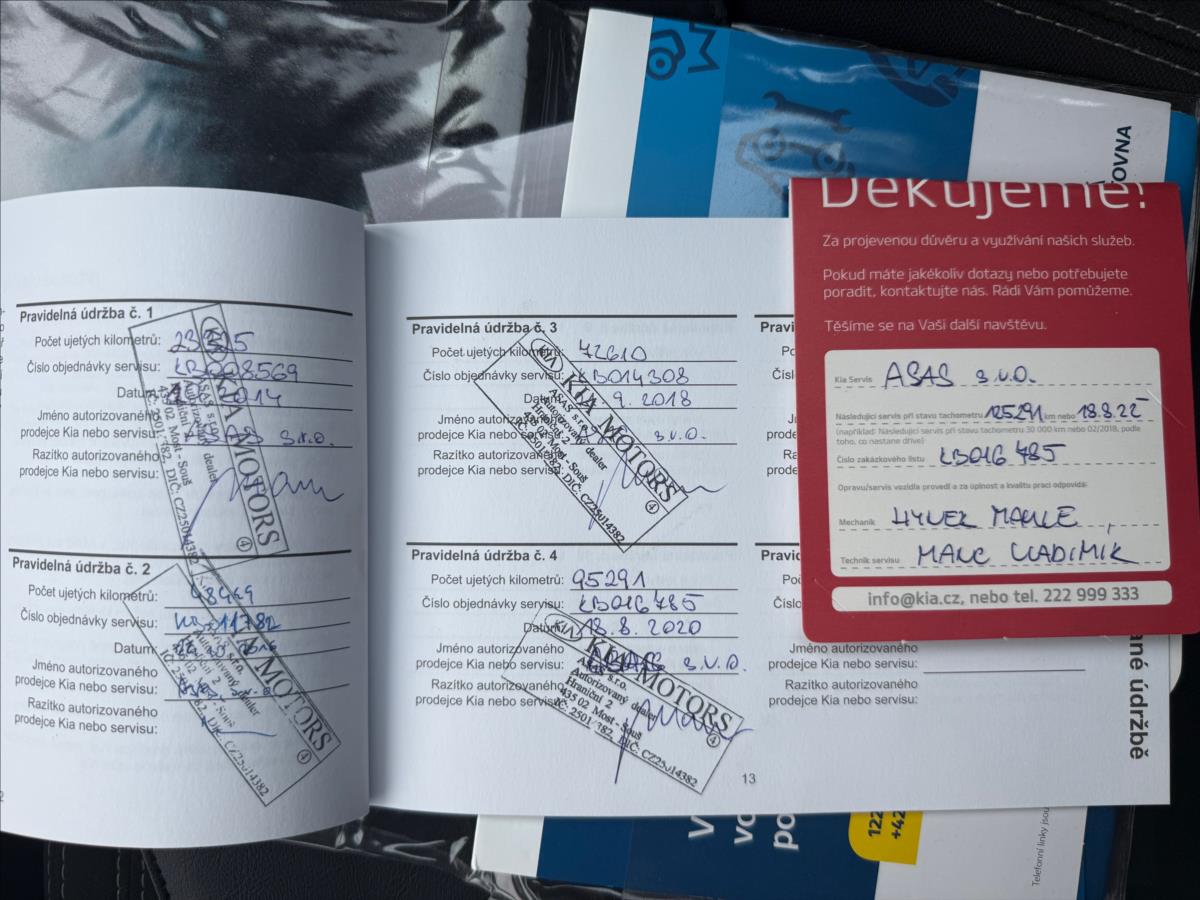 Pravidelná údržba č. 1
Počet ujetých kilometrů:
Číslo objednávky servisu: KB008569
Datum: 2014
Jméno autorizovaného
prodejce Kia nebo servisu: s.r.o.
Razítko autorizovaného
prodejce Kia nebo servisu:
KIA MOTORS
ASAS s.r.o.
Autorizovaný dealer
Hraniční 2
435 02 Most - Souš
DIČ. CZ25014382
4
Pravidelná údržba č. 2
Počet ujetých kilometrů: 48449
Číslo objednávky servisu: 11782
Datum:
Jméno autorizovaného
prodejce Kia nebo servisu:
Razítko autorizovaného
prodejce Kia nebo servisu:
KIA MOTORS
DIČ. CZ25014382
4
Pravidelná údržba č. 3
Počet ujetých kilometrů: 72610
Číslo objednávky servisu: KB014308
Datum: 9. 2018
Jméno autorizovaného
prodejce Kia nebo servisu: s.r.o.
Razítko autorizovaného
prodejce Kia nebo servisu:
KIA MOTORS
ASAS s.r.o.
Autorizovaný dealer
Hraniční 2
435 02 Most - Souš
DIČ. CZ25014382
4
Pravidelná údržba č. 4
Počet ujetých kilometrů: 95291
Číslo objednávky servisu: KB016785
Datum: 18.8. 2020
Jméno autorizovaného
prodejce Kia nebo servisu: ASAS s.r.o.
Razítko autorizovaného
prodejce Kia nebo servisu:
KIA MOTORS
ASAS s.r.o.
Autorizovaný dealer
Hraniční 2
435 02 Most - Souš
DIČ. CZ25014382
4
13
Děkujeme!
Za projevenou důvěru a využívání našich služeb.
Pokud máte jakékoliv dotazy nebo potřebujete
poradit, kontaktujte nás. Rádi Vám pomůžeme.
Těšíme se na Vaši další navštěvu.
Kia Servis ASAS s.r.o.
Následující servis při stavu tachometru 125291 km nebo 18.8.22
(například: Následující servis při stavu tachometru 30 000 km nebo 02/2018, podle
toho, co nastane dříve)
Číslo zakázkového listu KB016785
Opravu/servis vozidla provedl a za úplnost a kvalitu prací odpovídá:
Mechanik HYNEK
Technik servisu VLADIMÍR
info@kia.cz, nebo tel. 222 999 333
Prav
Poč
Číslo
Prav
Po
Číslo
Jméno autorizovaného
prodejce Kia nebo servisu:
Razítko autorizovaného
prodejce Kia nebo servisu:
údržbě
V
vo
po
122
+42
Telefonní linky jsou